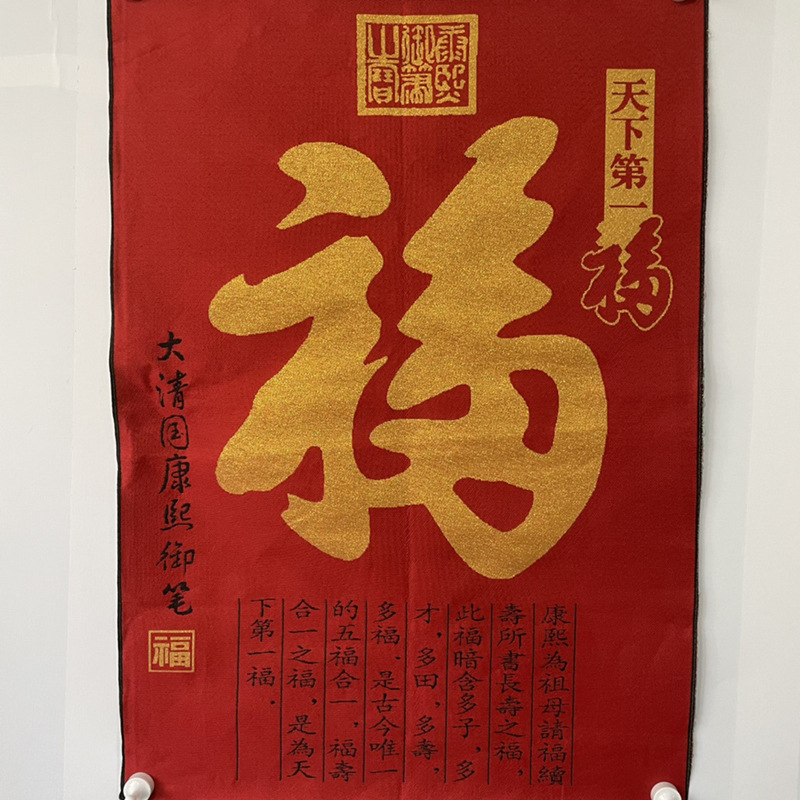 康熙御筆之寶
天下第一福
福
大清国康熙御笔
福
康熙為祖母請福續
壽所書長壽之福，
此福暗含多子，多
才，多田，多壽，
多福，是古今唯一
的五福合一，福壽
合一之福，是為天
下第一福．